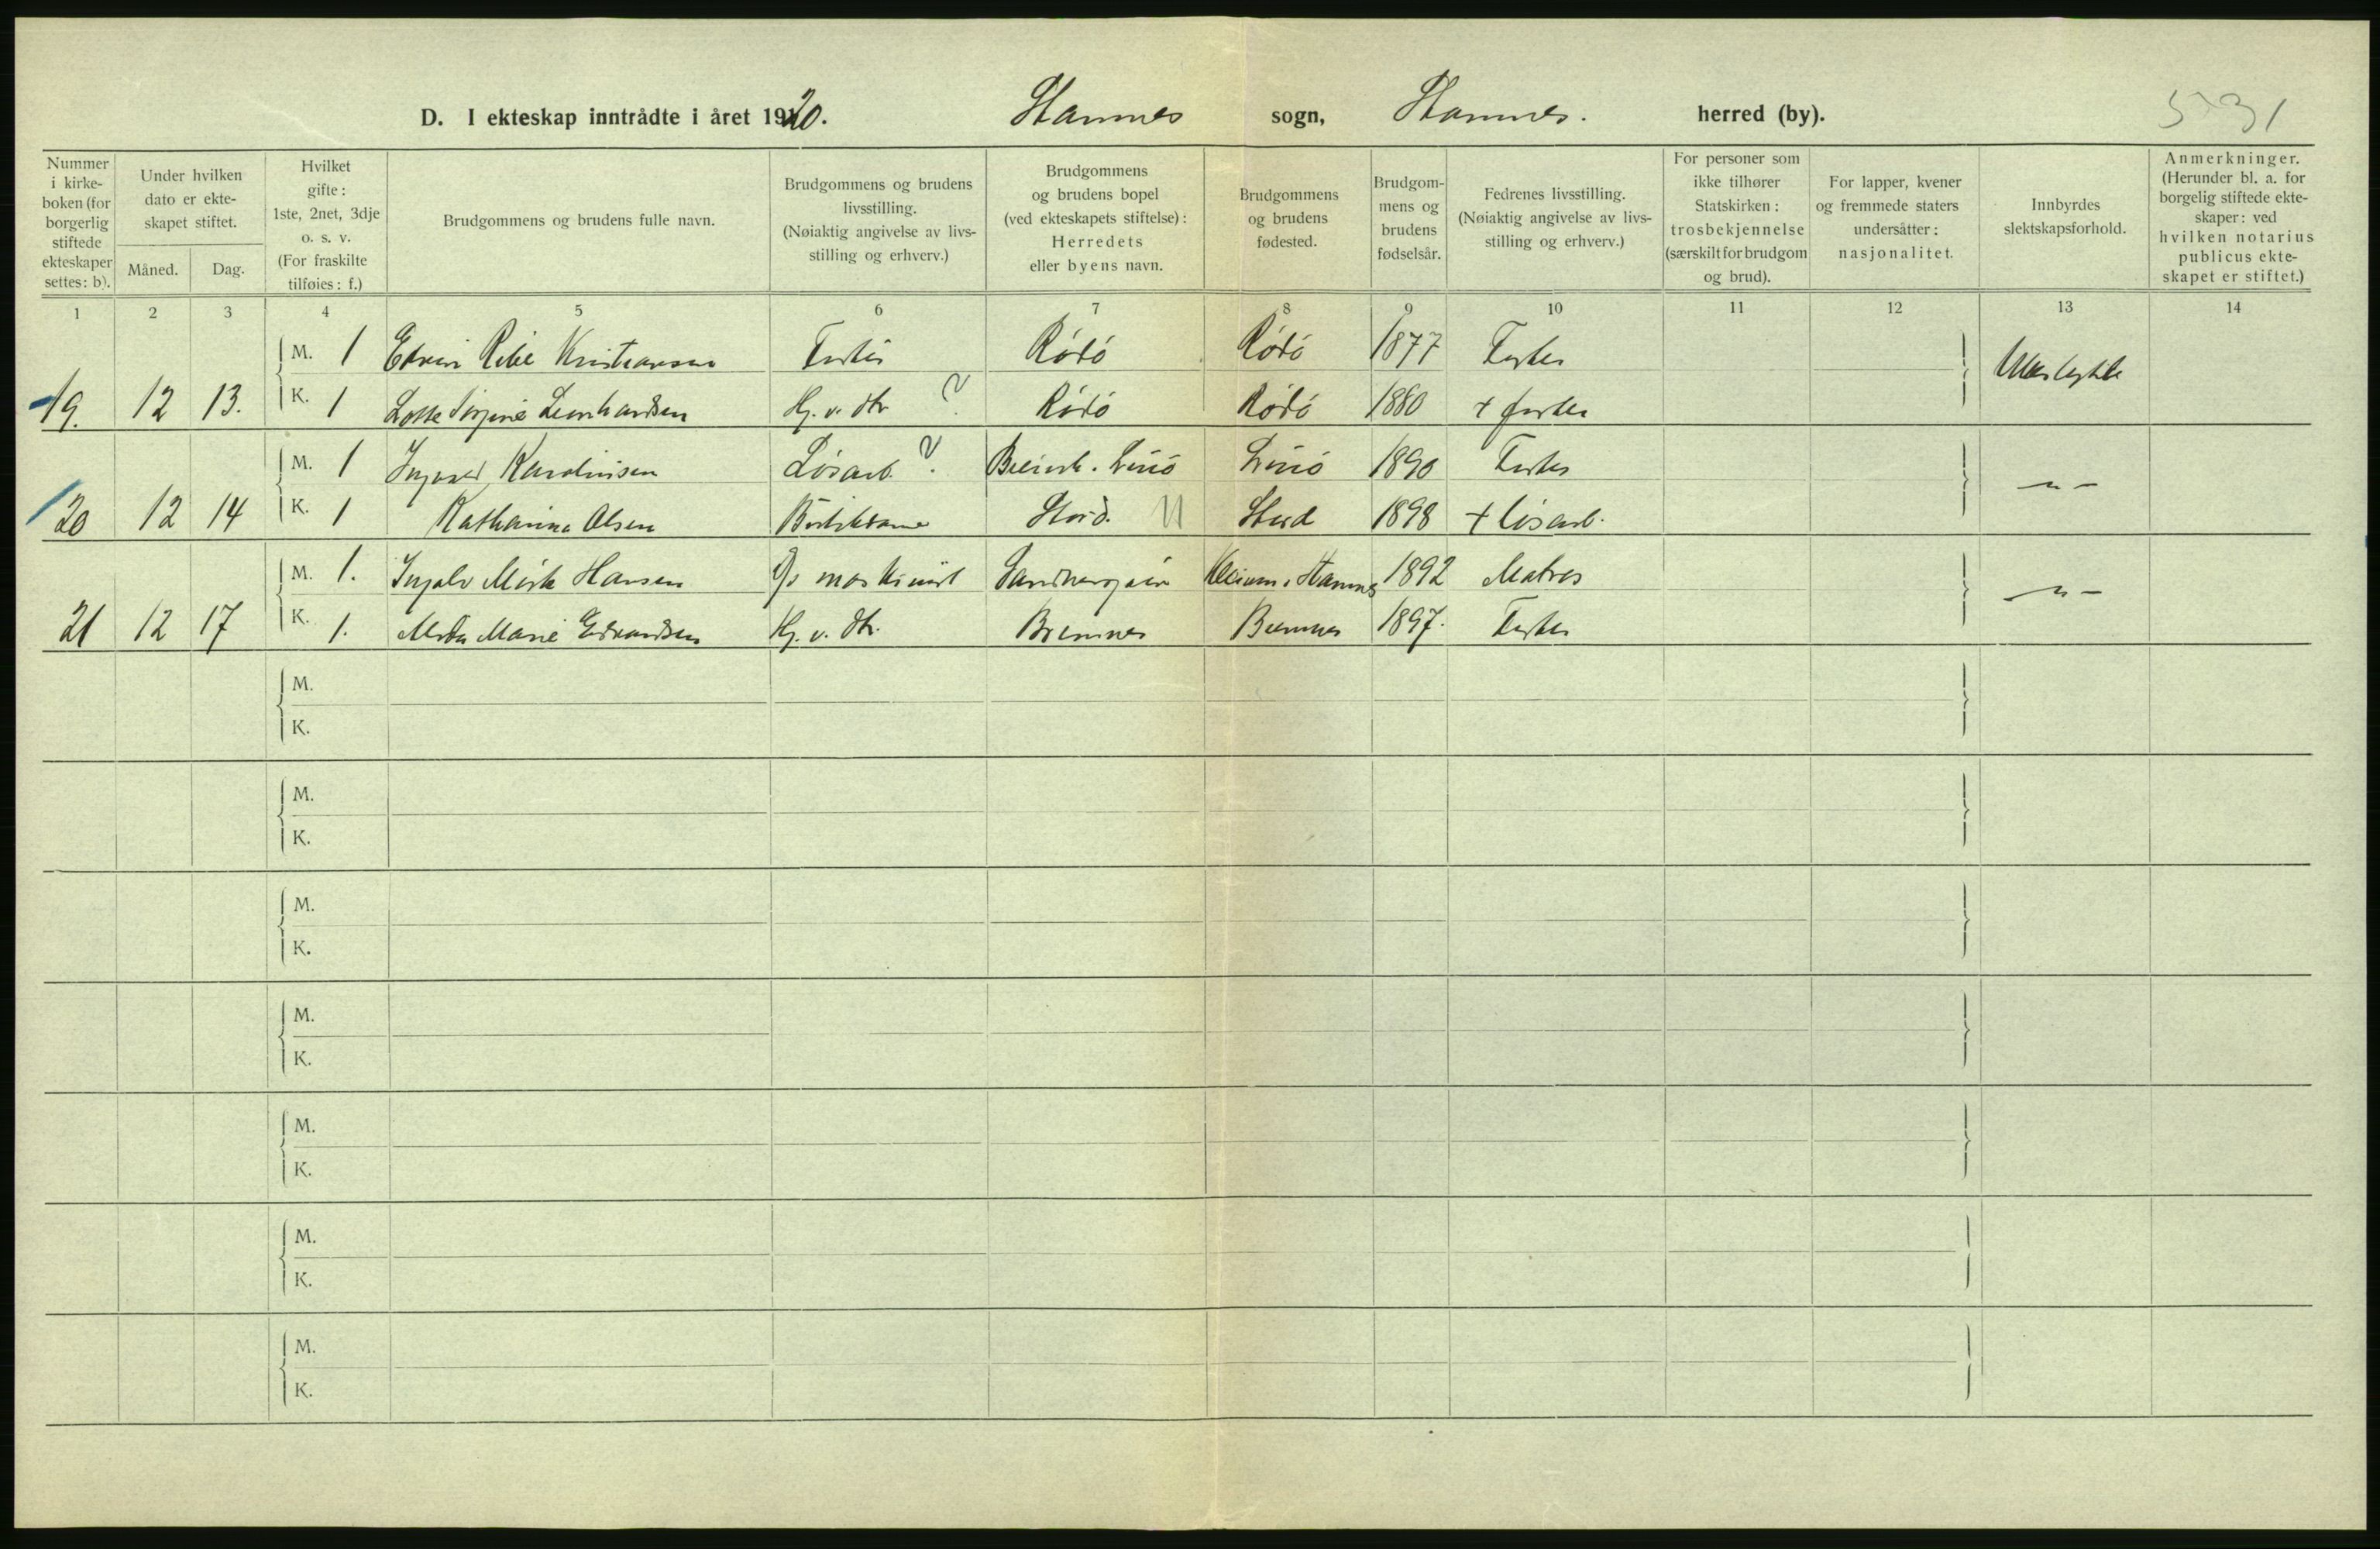 D. I ekteskap inntrådte i året 1920. Stamnes sogn, Stamnes. herred (by). 5731
Nummer i kirkeboken (for borgerlig stiftede ekteskaper settes: b).
Under hvilken dato er ekteskapet stiftet.
Måned. Dag.
Hvilket gifte: 1ste, 2net, 3dje o. s. v. (For fraskilte tilføies: f.)
Brudgommens og brudens fulle navn.
Brudgommens og brudens livsstilling. (Nøiaktig angivelse av livsstilling og erhverv.)
Brudgommens og brudens bopel (ved ekteskapets stiftelse): Herredets eller byens navn.
Brudgommens og brudens fødested.
Brudgommens og brudens fødselsår.
Fedrenes livsstilling. (Nøiaktig angivelse av livsstilling og erhverv.)
For personer som ikke tilhører Statskirken: trosbekjennelse (særskilt for brudgom og brud).
For lapper, kvener og fremmede staters undersåtter: nasjonalitet.
Innbyrdes slektskapsforhold.
Anmerkninger. (Herunder bl. a. for borgelig stiftede ekteskaper: ved hvilken notarius publicus ekteskapet er stiftet.)
1 2 3 4 5 6 7 8 9 10 11 12 13 14
M. 1 Kristiansen Rödö Rödö 1877 Fisker
19. 12 13. K. 1 Lotte Leonhardsen Hj. v. dtr ? Rödö Rödö 1880 + fisker
M. 1 Ingvald Karolinsen Lösarb. ? 1890 Fisker
20 12 14 K. 1 Katharina Olsen Stord. Stord 1898 + lösarb.
M. 1. Ingolv Mörk Hansen maskinist 1892 Matros
21 12 17 K. 1. Marie Edvardsen Hj. v. dtr. Bremnes Bremnes 1897. Fisker
M.
K.
M.
K.
M.
K.
M.
K.
M.
K.
M.
K.
M.
K.